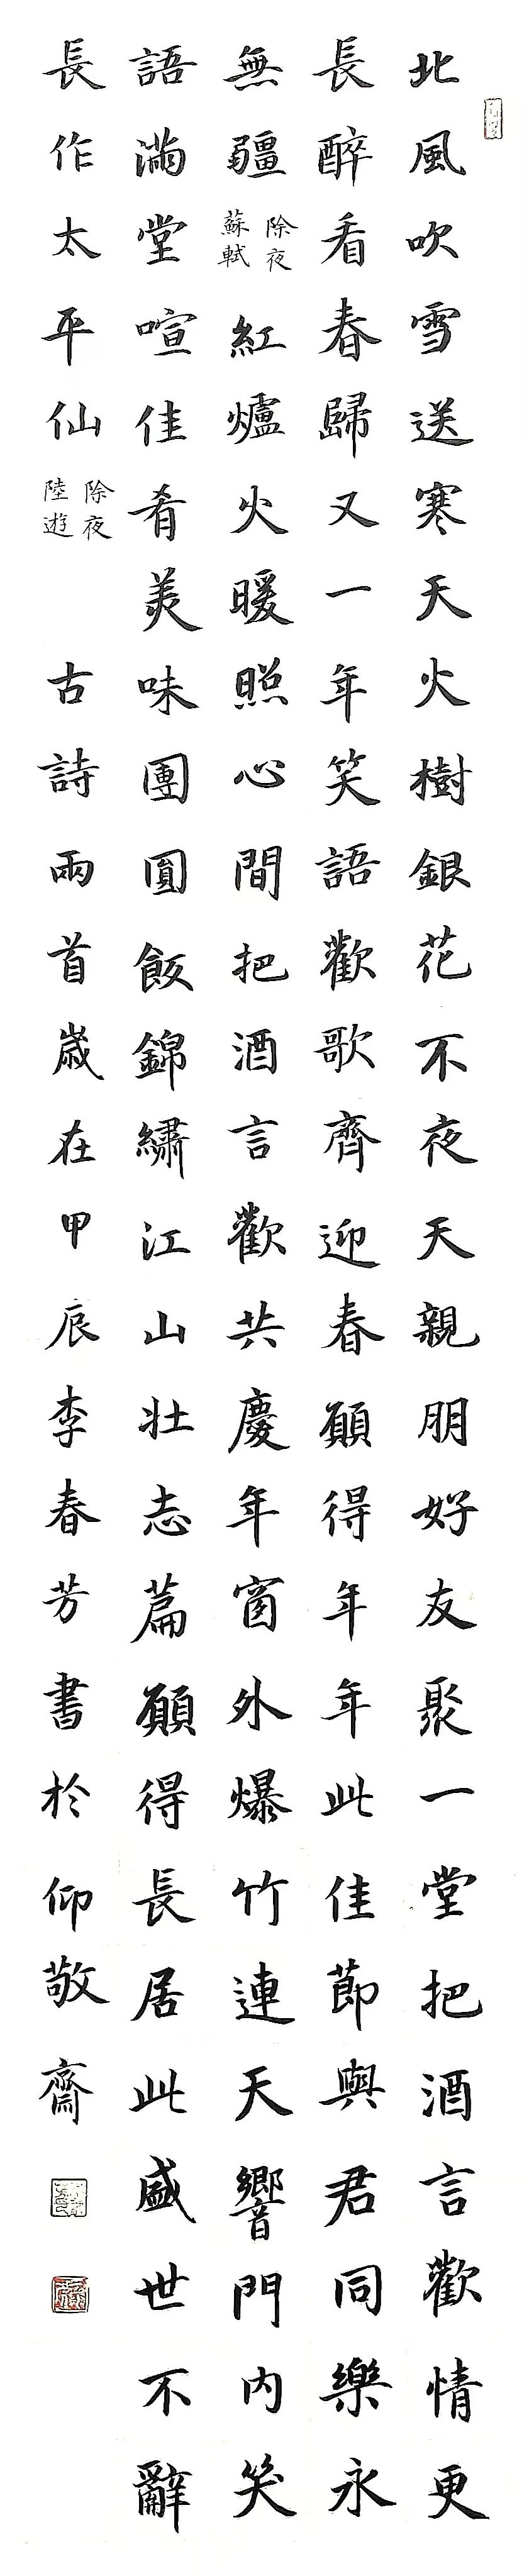 北風吹雪送寒天火樹銀花不夜天親朋好友聚一堂把酒言歡情更
長醉看春歸又一年笑語歡歌齊迎春願得年年此佳節與君同樂永
無疆
除夜
蘇軾
紅爐火暖照心間把酒言歡共慶年窗外爆竹連天響門內笑
語滿堂喧佳肴美味團圓飯錦繡江山壯志篇願得長居此盛世不辭
長作太平仙
除夜
陸遊
古詩兩首歲在甲辰李春芳書於仰敬齋